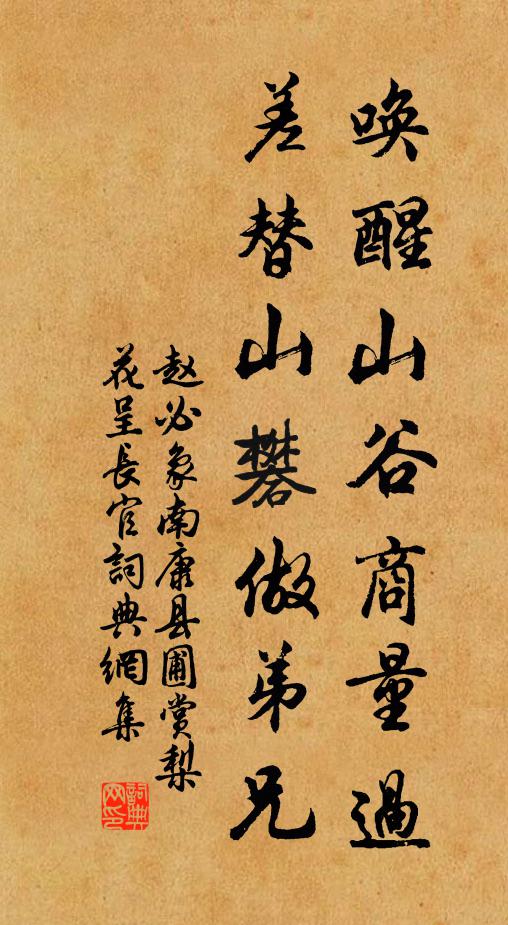 唤醒山谷商量過
差替山礬做弟兄
赵必象南康县圃赏梨
花呈長官詞典網集
詞典网印